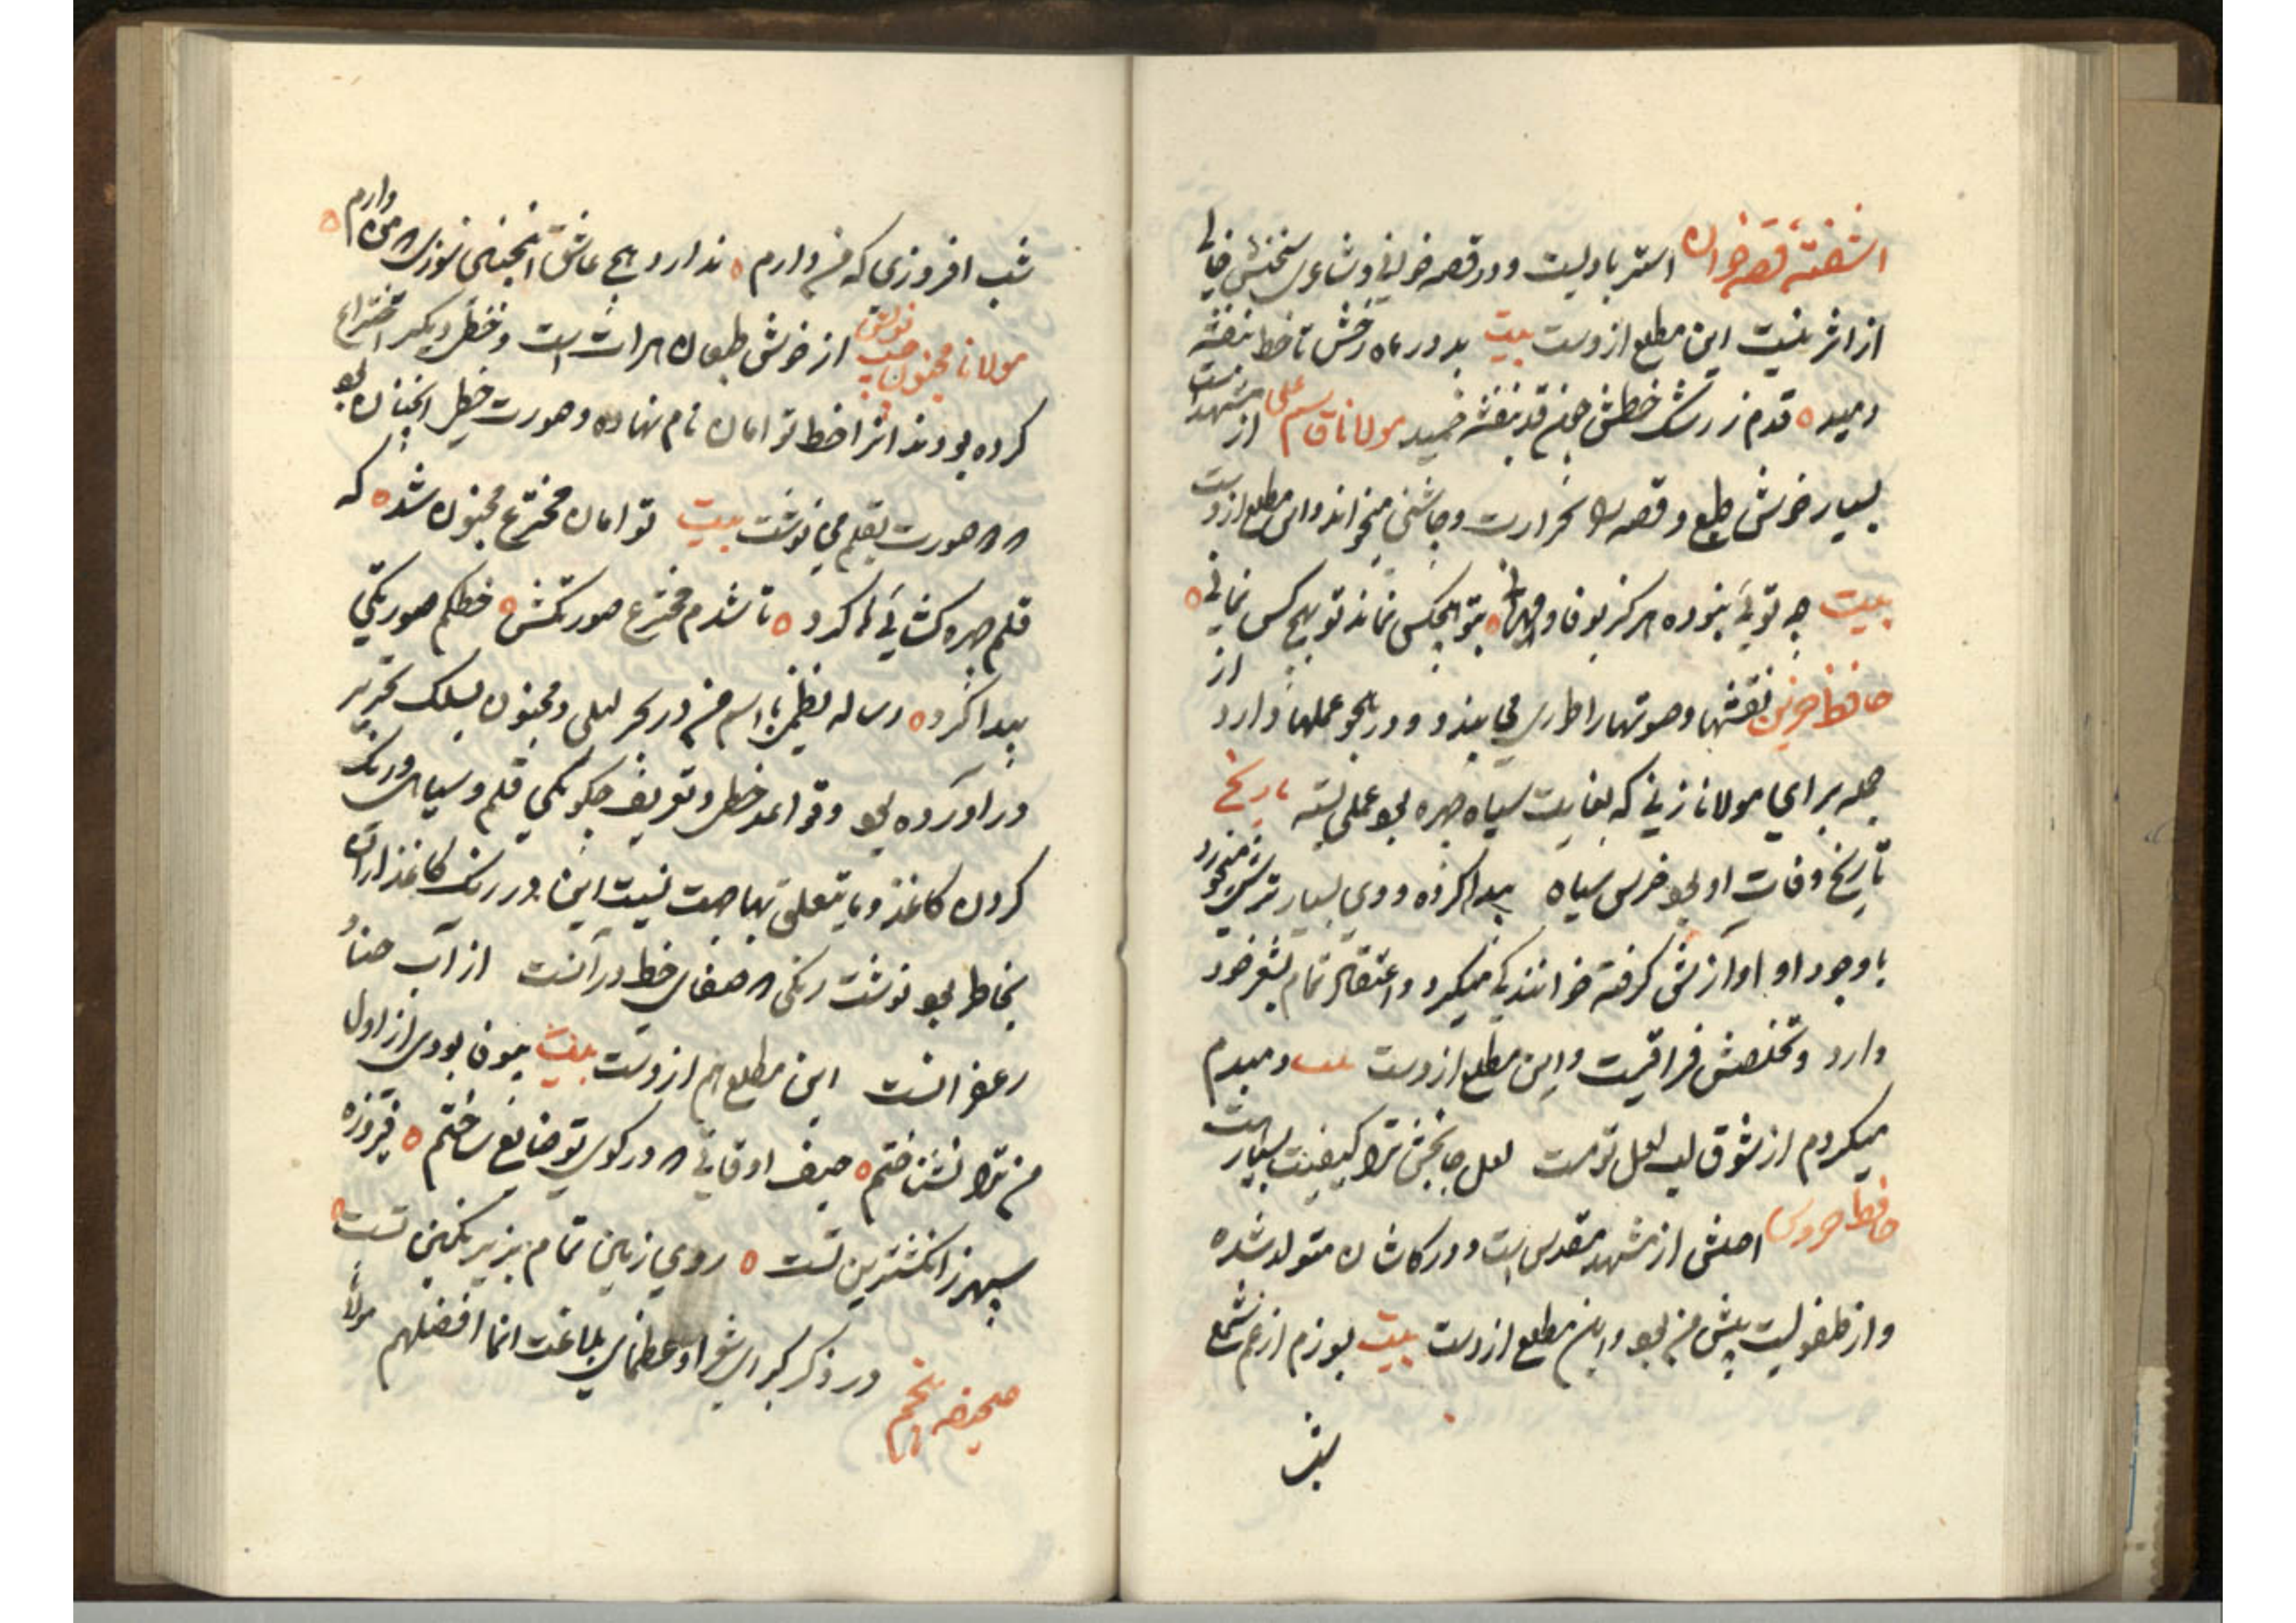 آشفته قصه خوان استربادیست و در قصه خوانی و شاعری سخنش خالی
از اثر نیست این مطلع ازوست بیت بدور ماه رخش تا خط بنفشه
دمید ه قدم ز رشک خطش همچو قد بنفشه خمید مولانا قاسم علی از مشهد است
بسیار خوش طبع و قصه را بحرارت و چاشنی میخواند و این مطلع ازوست
بیت چه توئی نبوده هرکز بوفا و مهربانی ه بتو هیچکس نماند تو بهیچ کس نمانی ه
حافظ حزین نقشها و صوتها را طوری می بندد و در هجو عملها دارد از
جمله برای مولانا زینی که بغایت سیاه چهره بود عملی بسته تاریخ
تاریخ وفات او بود خرس سیاه پیدا کرده و وی بسیار ترش میخورد
با وجود او آوازش گرفته خوانندگی میکرد و اعتقاد تمام بشعر خود
دارد و تخلصش فراقیست و این مطلع ازوست بیت دمبدم
میکردم از شوق لب لعل تو مست لعل جانبخش ترا کیفیت بسیار هست
حافظ اصلش از مشهد مقدس است و در کاشان متولد شده
و از طفولیت پیش من بود و این مطلع ازوست بیت بسوزم از غم شمع
شب
شب افروزی که من دارم ه ندارد هیچ عاشق اینچنین سوزی که من دارم ه
مولانا مجنون چپ نویس از خوش طبعان هرات است و خطی دیکر اختراع
کرده بودند انرا خط توامان نام نهاده و صورت خطی اینچنان بود
که صورت بقلم می نوشت بیت توامان مخترع مجنون شد ه که
قلم چهره کشائیها کرد ه تا شدم مخترع صورتکش ه خطکم صورتکی
پیدا کرد ه رساله نظمی باسم من در بحر لیلی و مجنون بسلک تحریر
در آورده بود و قواعد خط و تعریف چکونکی قلم و سیاهی و رنک
کردن کاغذ و ما یتعلق بهاجت نیست این در رنک کاغذ ازان
بخاطر بود نوشت رنکی که صفای خط در آنست از آب حنا و
زعفرانست این مطلع هم ازوست بیت بیوفا بودی از اول
من ترا نشناختم ه حیف اوقاتی که در کوی تو ضایع ساختم ه فیروزه
سپهر ز انکشترین تست ه روی زمین تمام بزیر نکین تست ه
صحیفه پنجم در ذکر کبرای شعرا و عظمای بلاغت انما افضلهم مولانا